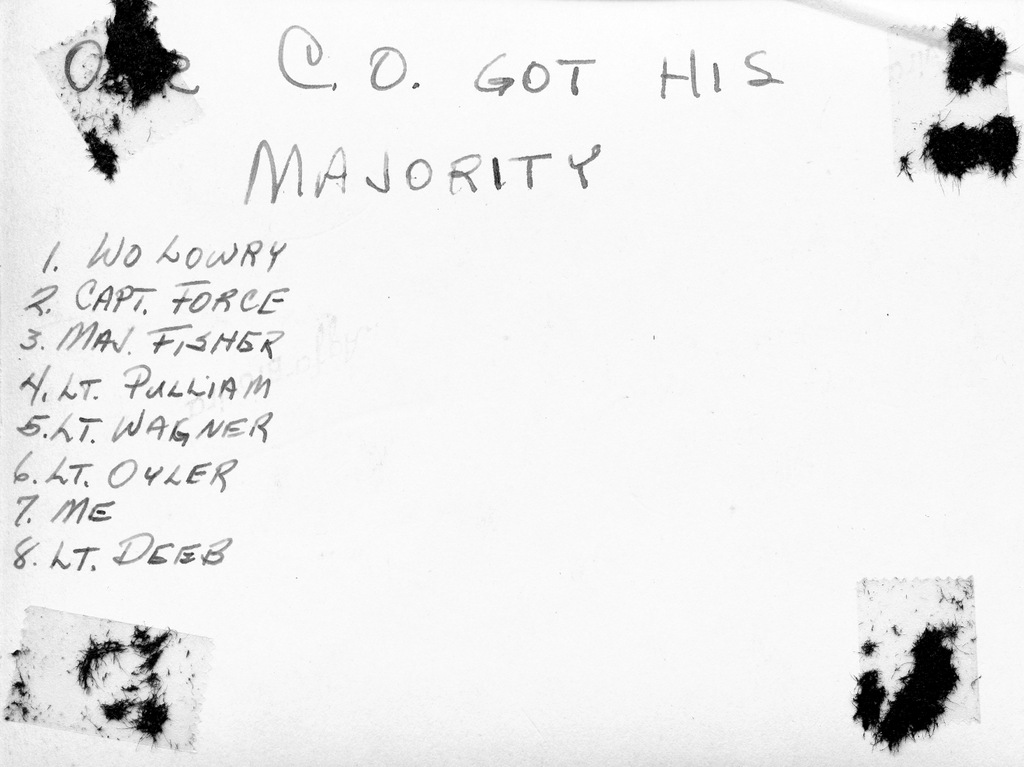 Our C.O. GOT HIS
MAJORITY
1. WO LOWRY
2. CAPT. FORCE
3. MAJ. FISHER
4. LT. PULLIAM
5. LT. WAGNER
6. LT. OYLER
7. ME
8. LT. DEEB